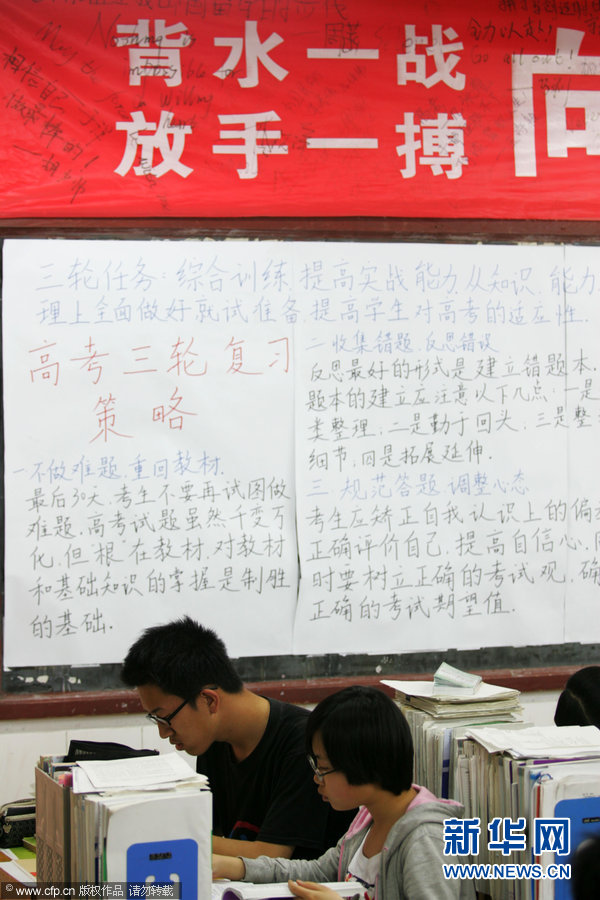 Nothing is
背水一战
放手一搏
向
Go all out!
相信自己
三轮任务：综合训练，提高实战能力，从知识、能力、
理上全面做好就试准备，提高学生对高考的适应性．
高考三轮复习
策略
一 不做难题，重回教材．
最后30天，考生不要再试图做
难题，高考试题虽然千变万
化，但根在教材，对教材
和基础知识的掌握是制胜
的基础．
二 收集错题，反思错误
反思最好的形式是建立错题本．
题本的建立应注意以下几点：一是
类整理；二是勤于回头；三是整
细节；四是拓展延伸．
三 规范答题，调整心态
考生应矫正自我认识上的偏
正确评价自己，提高自信心，
时要树立正确的考试观，确
正确的考试期望值．
新华网
WWW.NEWS.CN
© www.cfp.cn 版权作品 请勿转载